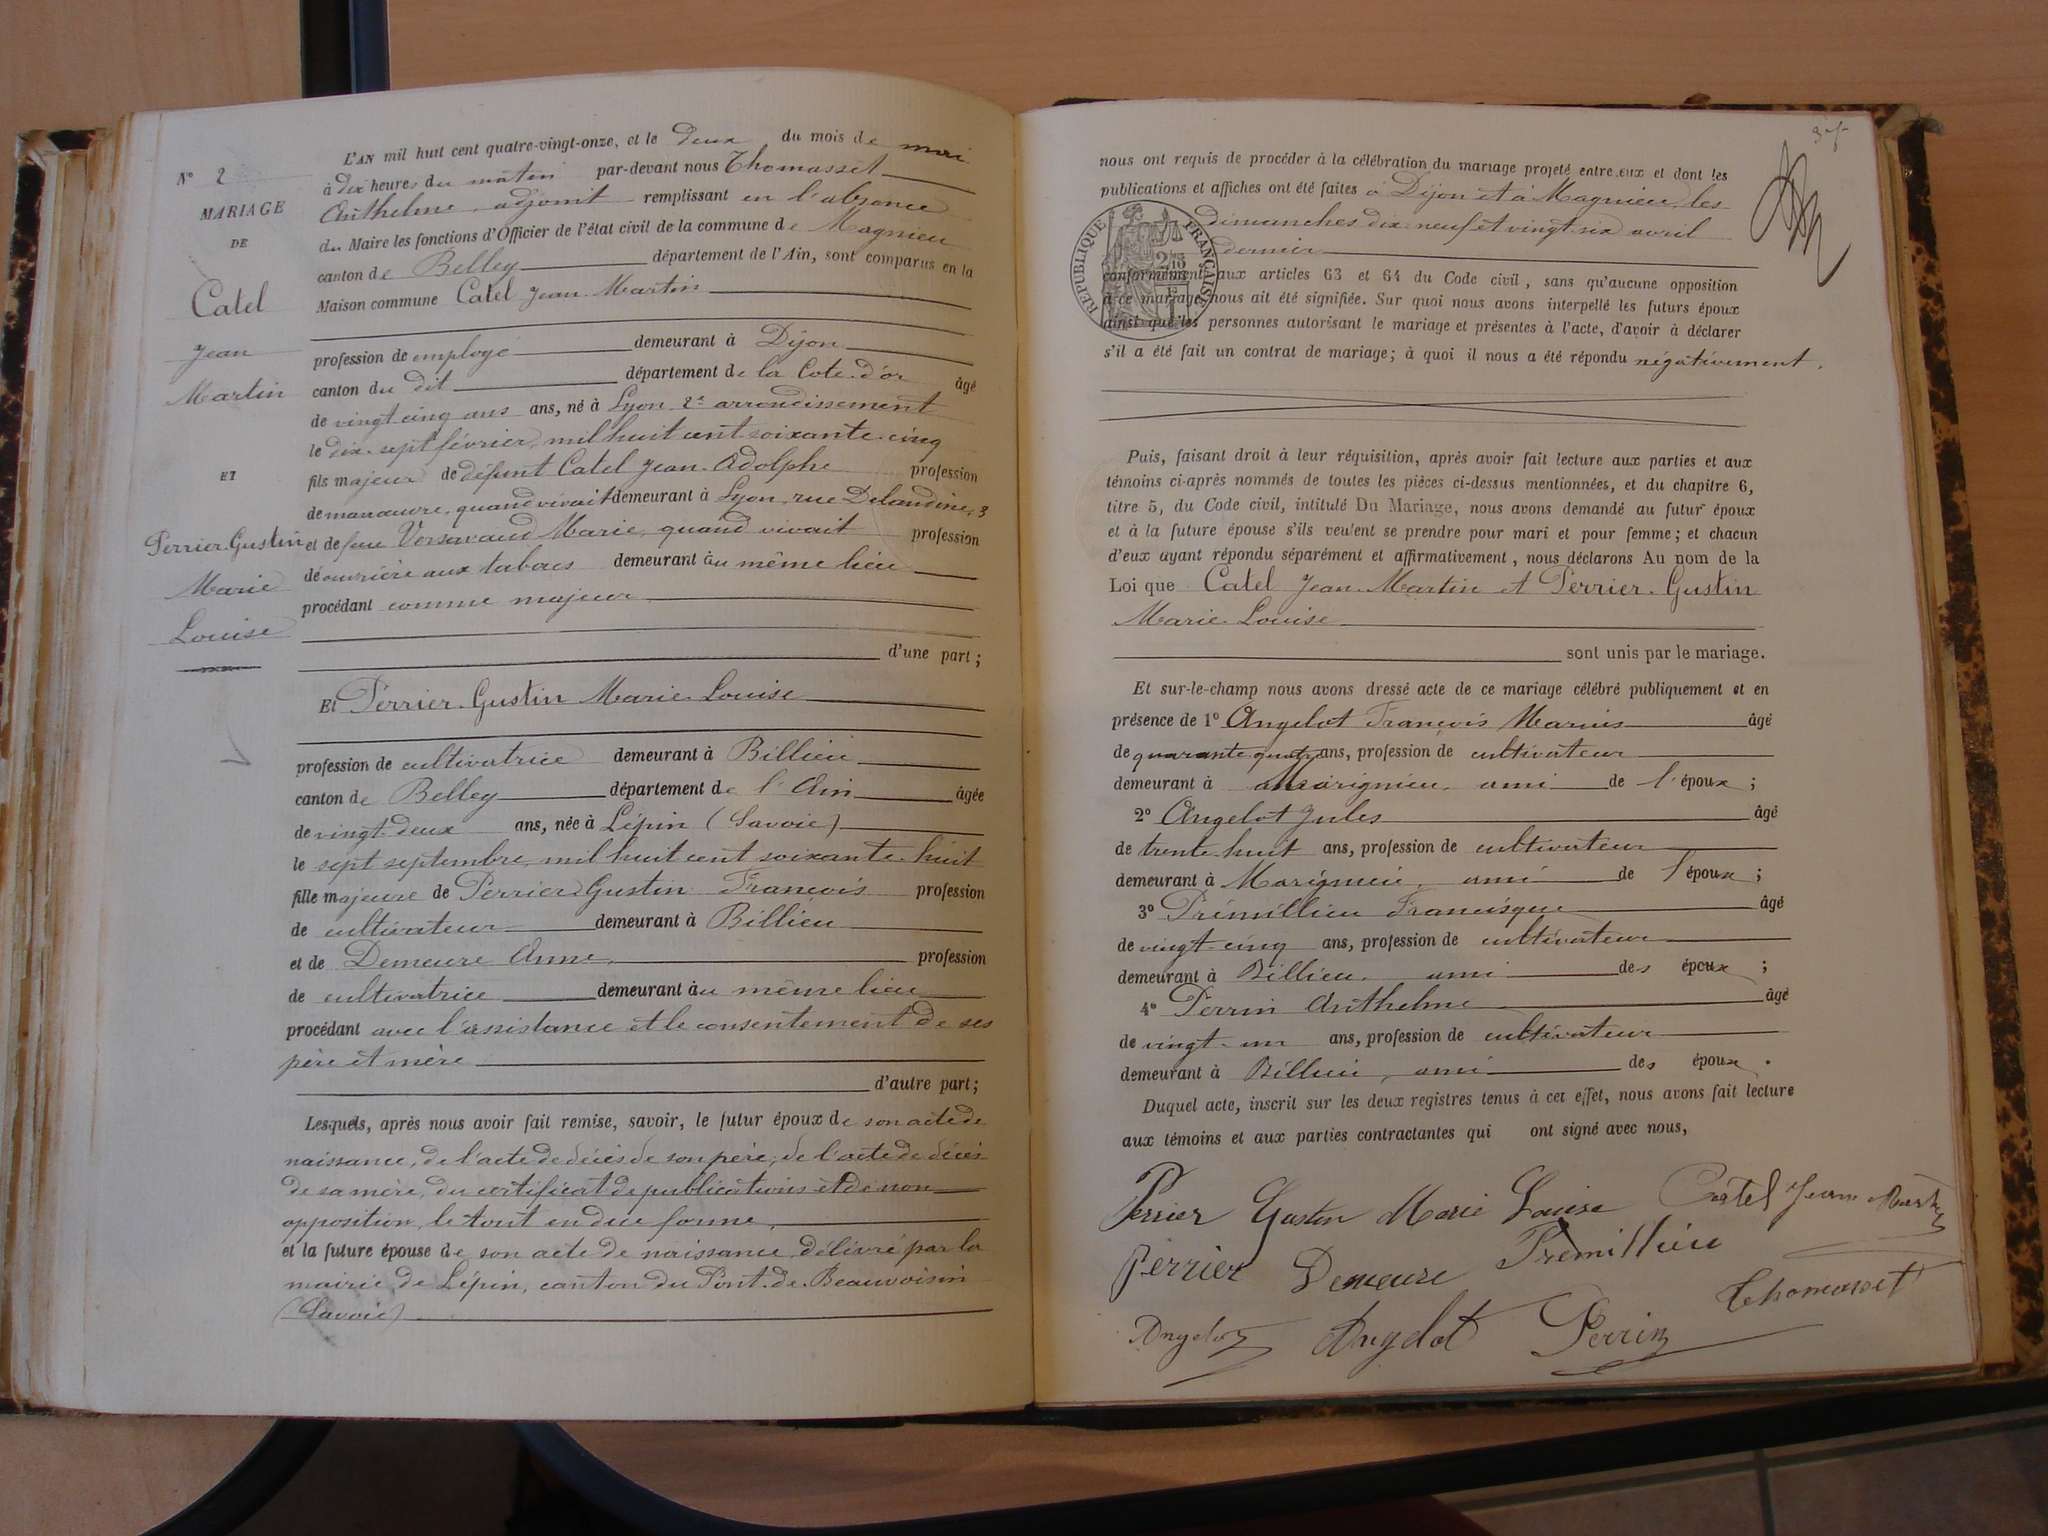 N° 2
MARIAGE
DE
Catel
Jean
Martin
ET
Perrier Gustin
Marie
Louise
L'AN mil huit cent quatre-vingt-onze, et le deux du mois de mai
à dix heures du matin par-devant nous Thomasset
Anthelme, adjoint remplissant en l'absence
du Maire les fonctions d'Officier de l'état civil de la commune de Magnieu
canton de Belley département de l'Ain, sont comparus en la
Maison commune Catel Jean Martin
profession de employé demeurant à Dijon
canton du dit département de la Cote d'or âgé
de vingt cinq ans ans, né à Lyon 2e arrondissement
le dix-sept février, mil huit cent soixante-cinq
fils majeur de défunt Catel Jean-Adolphe profession
de manœuvre, quand vivait demeurant à Lyon, rue Delandine, 3
et de feue Versavaud Marie, quand vivait profession
de ouvrière aux tabacs demeurant au même lieu
procédant comme majeur
d'une part;
Et Perrier-Gustin Marie Louise
profession de cultivatrice demeurant à Billieu
canton de Belley département de l'Ain âgée
de vingt-deux ans, née à Lépin (Savoie)
le sept septembre, mil huit cent soixante-huit
fille majeure de Perrier Gustin François profession
de cultivateur demeurant à Billieu
et de Demeure Anne profession
de cultivatrice demeurant au même lieu
procédant avec l'assistance et le consentement de ses
père et mère
d'autre part;
Lesquels, après nous avoir fait remise, savoir, le futur époux de son acte de
naissance, de l'acte de décès de son père, de l'acte de décès
de sa mère, du certificat de publications et de non
opposition, le tout en due forme,
et la future épouse de son acte de naissance délivré par la
mairie de Lépin, canton du Pont-de-Beauvoisin
(Savoie)
37
nous ont requis de procéder à la célébration du mariage projeté entre eux et dont les
publications et affiches ont été faites à Dijon et à Magnieu, les
dimanches dix-neuf et vingt-six avril
dernier
RÉPUBLIQUE FRANÇAISE
conformément aux articles 63 et 64 du Code civil, sans qu'aucune opposition
à ce mariage nous ait été signifiée. Sur quoi nous avons interpellé les futurs époux
ainsi que les personnes autorisant le mariage et présentes à l'acte, d'avoir à déclarer
s'il a été fait un contrat de mariage; à quoi il nous a été répondu négativement.
Puis, faisant droit à leur réquisition, après avoir fait lecture aux parties et aux
témoins ci-après nommés de toutes les pièces ci-dessus mentionnées, et du chapitre 6,
titre 5, du Code civil, intitulé Du Mariage, nous avons demandé au futur époux
et à la future épouse s'ils veulent se prendre pour mari et pour femme; et chacun
d'eux ayant répondu séparément et affirmativement, nous déclarons Au nom de la
Loi que Catel Jean-Martin et Perrier-Gustin
Marie-Louise
sont unis par le mariage.
Et sur-le-champ nous avons dressé acte de ce mariage célébré publiquement et en
présence de 1° Angelot François Marius âgé
de quarante quatre ans, profession de cultivateur
demeurant à Marignieu, ami de l'époux;
2° Angelot Jules âgé
de trente huit ans, profession de cultivateur
demeurant à Marignieu, ami de l'époux;
3° Prémillieu Francisque âgé
de vingt-cinq ans, profession de cultivateur
demeurant à Billieu, ami des époux;
4° Perrin Anthelme âgé
de vingt-un ans, profession de cultivateur
demeurant à Billieu, ami des époux.
Duquel acte, inscrit sur les deux registres tenus à cet effet, nous avons fait lecture
aux témoins et aux parties contractantes qui ont signé avec nous,
Perrier Gustin Marie Louise Catel Jean Martin
Perrier Demeure Prémillieu
Thomasset
Angelot Angelot Perrin